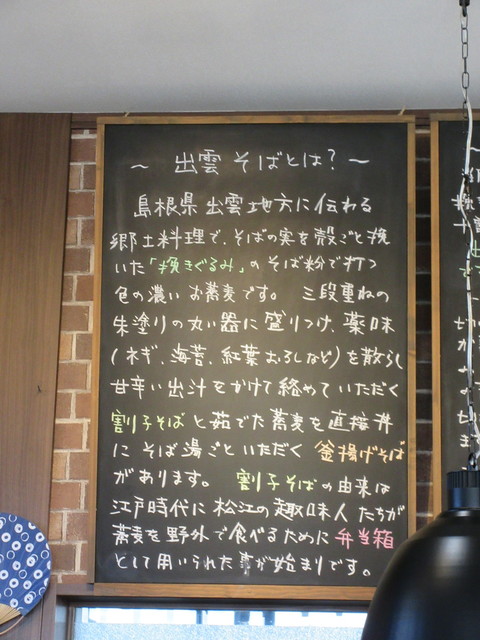 ~ 出雲そばとは?~
島根県出雲地方に伝わる
郷土料理で、そばの実を殻ごと挽
いた「挽きぐるみ」のそば粉で打つ
色の濃いお蕎麦です。 三段重ねの
朱塗りの丸い器に盛りつけ、薬味
(ネギ、海苔、紅葉おろしなど)を散らし
甘辛い出汁をかけて絡めていただく
割子そばと茹でた蕎麦を直接丼
にそば湯ごといただく釜揚げそば
があります。 割子そばの由来は
江戸時代に松江の趣味人たちが
蕎麦を野外で食べるために弁当箱
として用いられた事が始まりです。